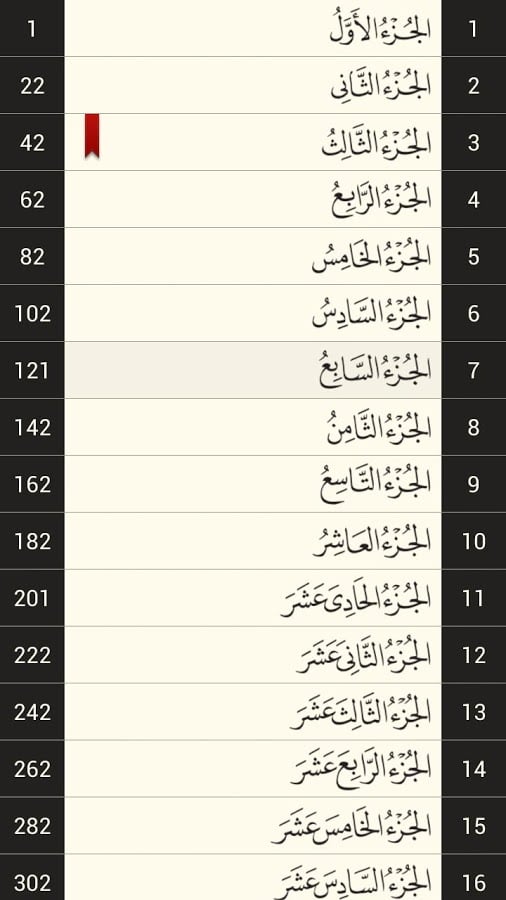 1 الجُزْءُ الأَوَّلُ 1
2 الجُزْءُ الثَّانِى 22
3 الجُزْءُ الثَّالِثُ 42
4 الجُزْءُ الرَّابِعُ 62
5 الجُزْءُ الخَامِسُ 82
6 الجُزْءُ السَّادِسُ 102
7 الجُزْءُ السَّابِعُ 121
8 الجُزْءُ الثَّامِنُ 142
9 الجُزْءُ التَّاسِعُ 162
10 الجُزْءُ العَاشِرُ 182
11 الجُزْءُ الحَادِىَ عَشَرَ 201
12 الجُزْءُ الثَّانِىَ عَشَرَ 222
13 الجُزْءُ الثَّالِثَ عَشَرَ 242
14 الجُزْءُ الرَّابِعَ عَشَرَ 262
15 الجُزْءُ الخَامِسَ عَشَرَ 282
16 الجُزْءُ السَّادِسَ عَشَرَ 302